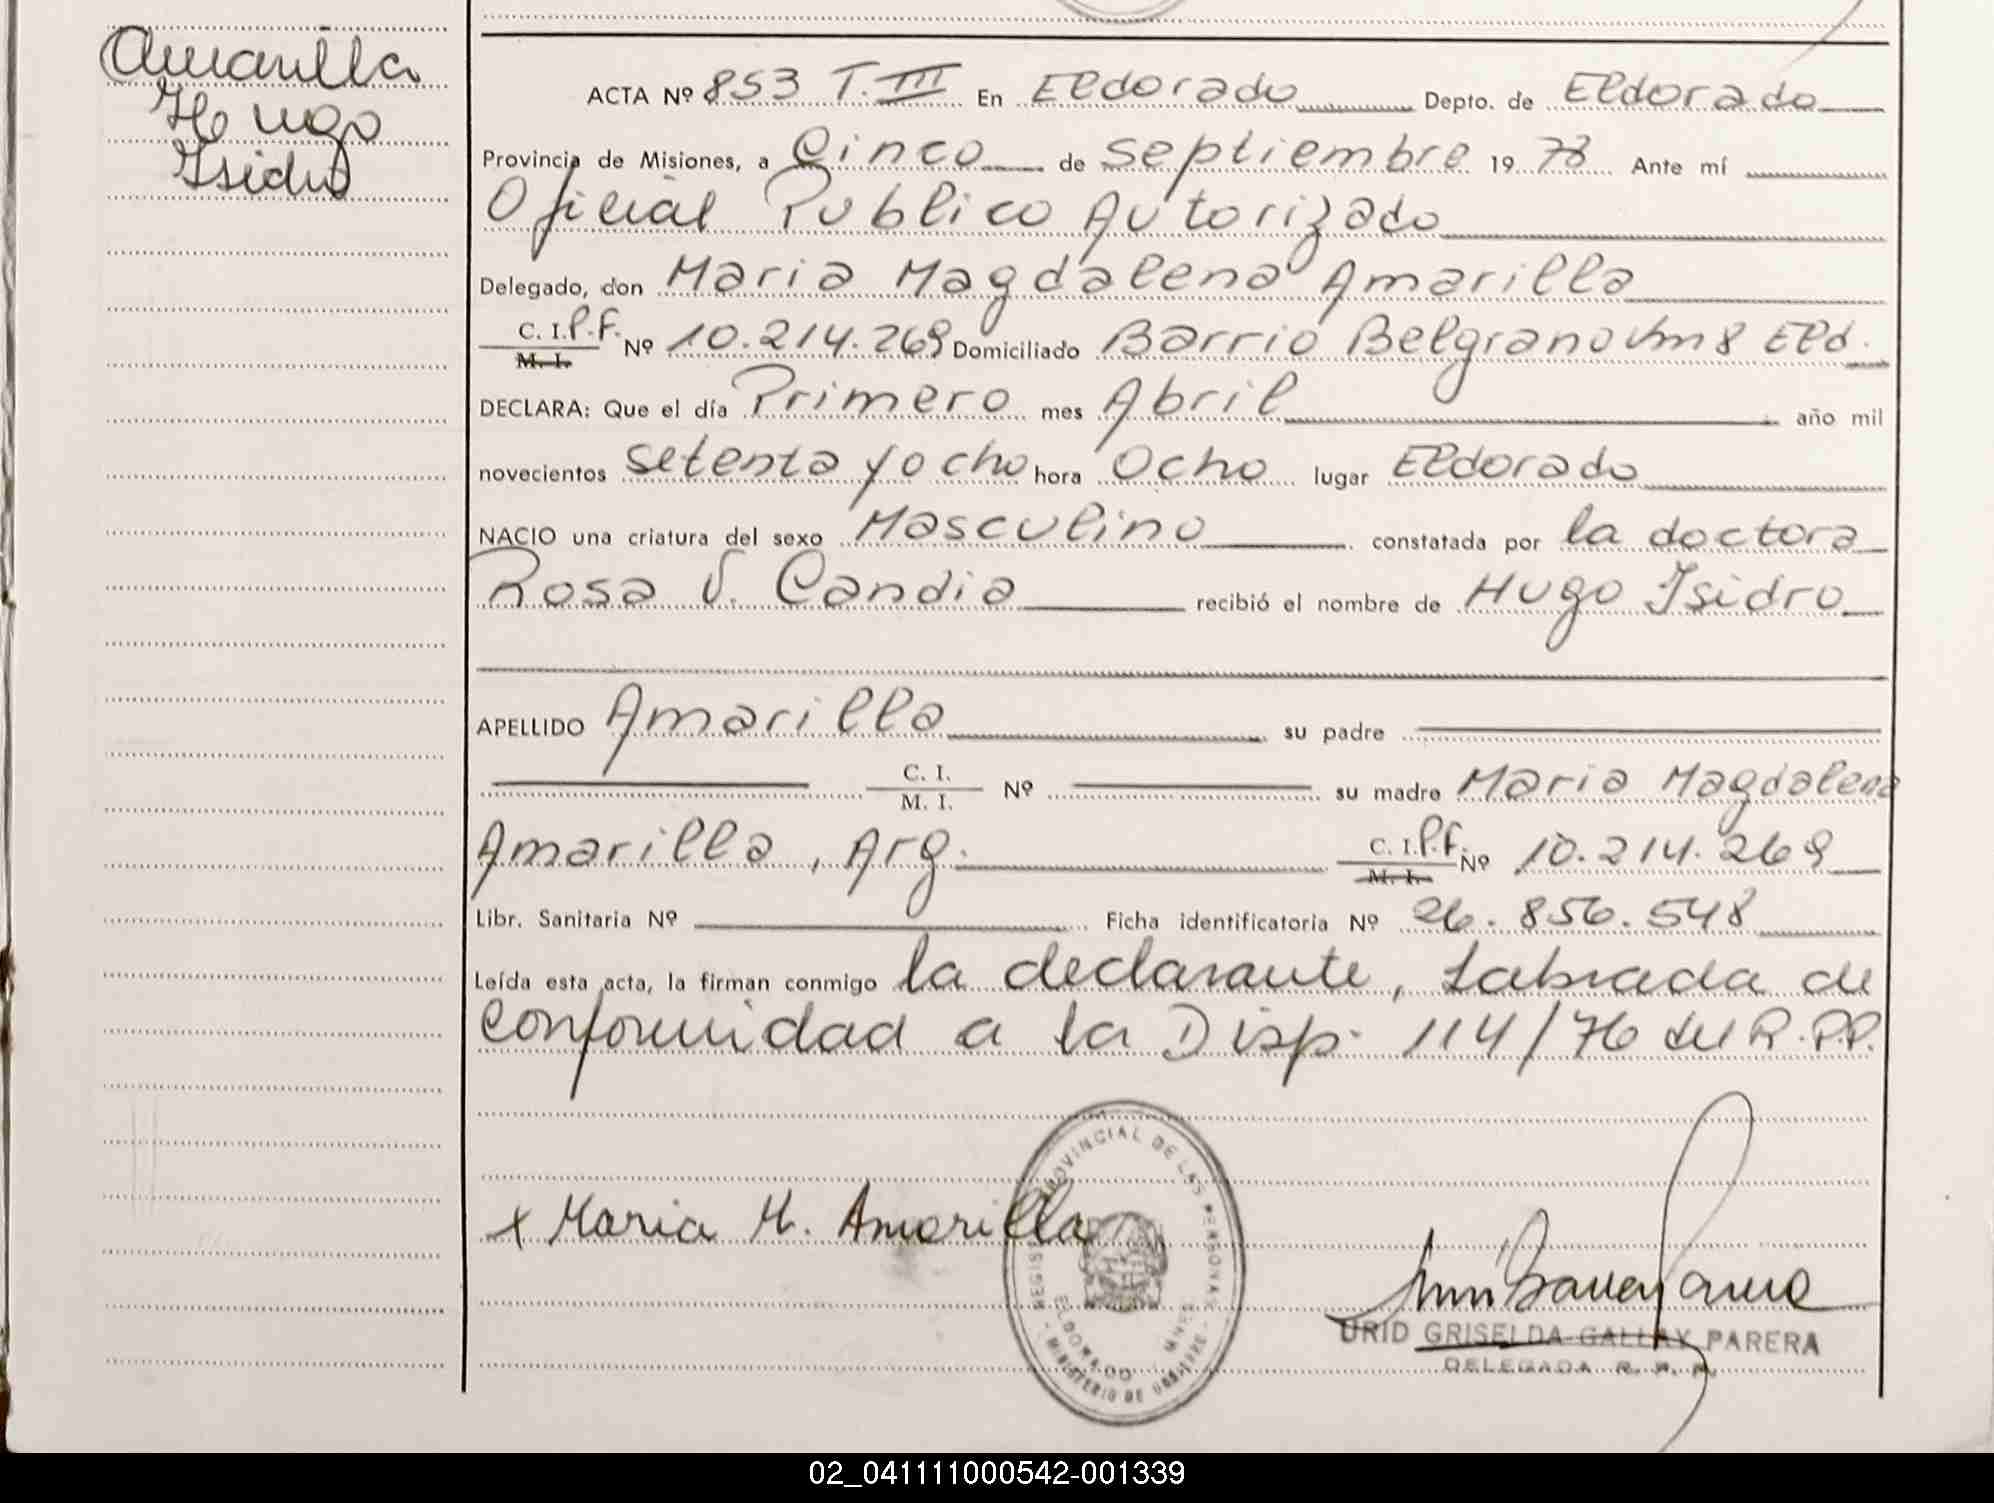 Amarilla
Hugo
Isidro
ACTA Nº 853 T. III En Eldorado Depto. de Eldorado
Provincia de Misiones, a Cinco de Septiembre 19 78 Ante mí
Oficial Publico Autorizado
Delegado, don Maria Magdalena Amarilla
C. I. P.F.
M. I. Nº 10.214.269 Domiciliado Barrio Belgrano Km 8 Eld.
DECLARA: Que el día Primero mes Abril año mil
novecientos setenta y ocho hora Ocho lugar Eldorado
NACIO una criatura del sexo Masculino constatada por la doctora
Rosa V. Candia recibió el nombre de Hugo Isidro
APELLIDO Amarilla su padre
C. I.
M. I. Nº su madre Maria Magdalena
Amarilla, Arg. C. I. P.F.
M. I. Nº 10.214.269
Libr. Sanitaria Nº Ficha identificatoria Nº 26.856.548
Leída esta acta, la firman conmigo la declarante, Labrada de
Conformidad a la Disp. 114/76 del R.P.P.
x Maria M. Amarilla
REGISTRO PROVINCIAL DE LAS PERSONAS
ELDORADO MNES
MINISTERIO DE GOBIERNO
URID GRISELDA GALLAY PARERA
DELEGADA R. P. P.
02_041111000542-001339